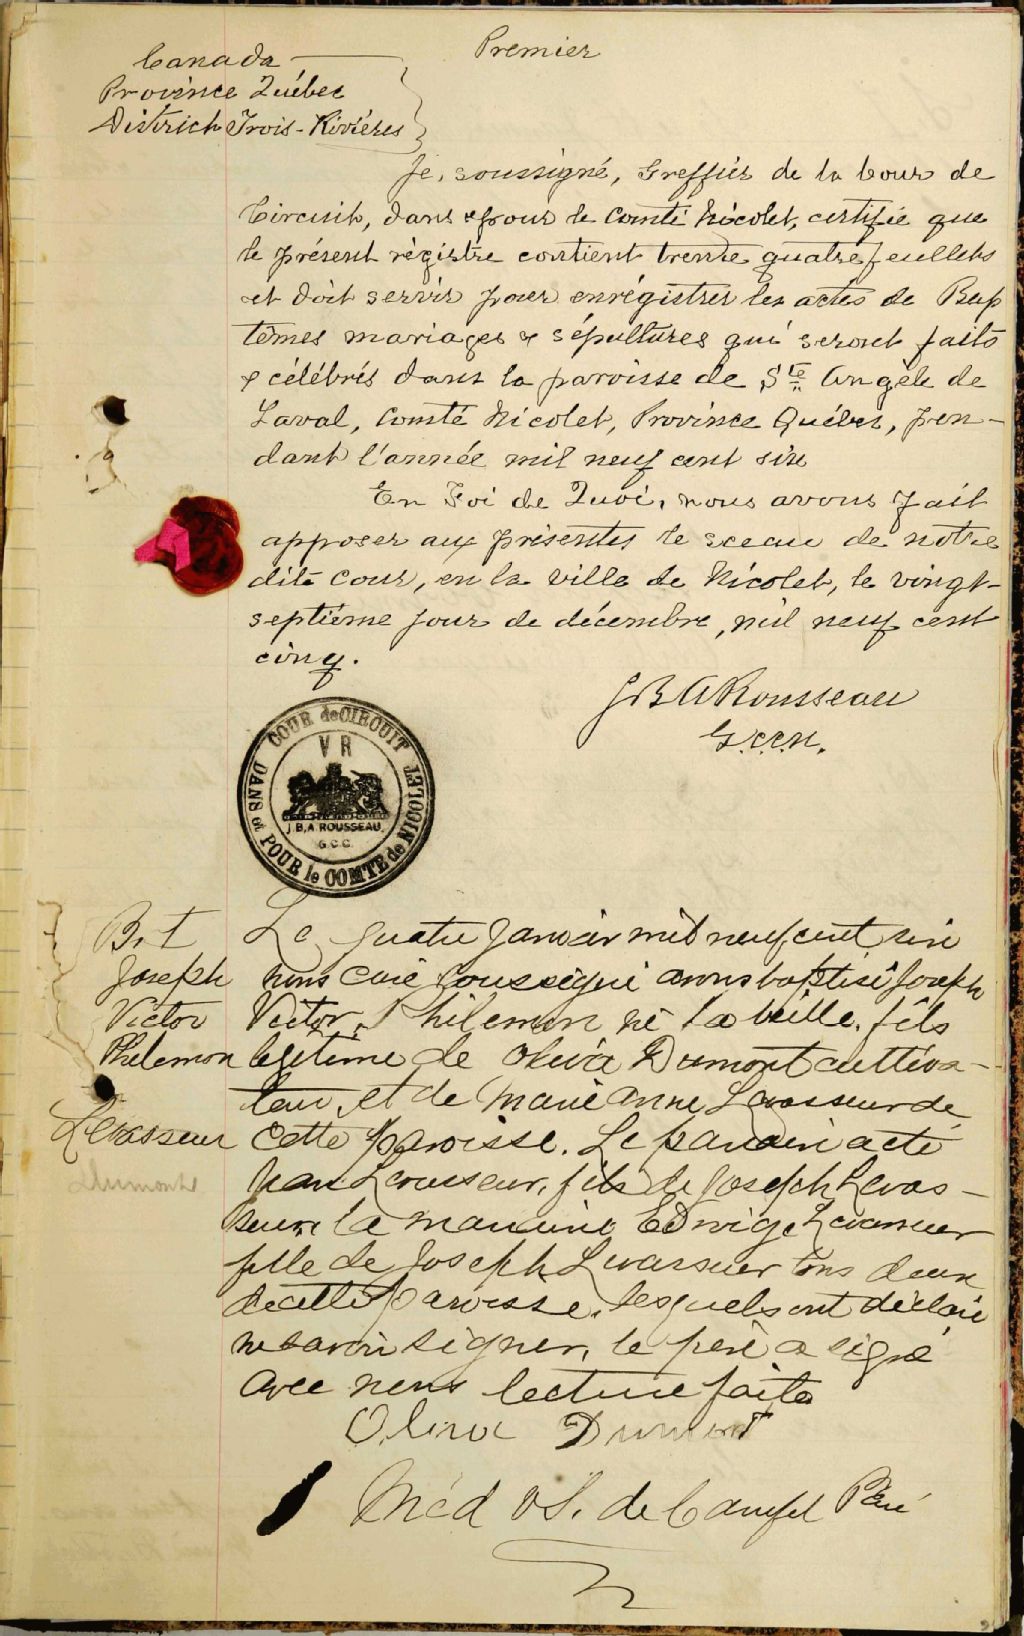 Premier
Canada
Province Québec
District Trois-Rivières
Je, soussigné, Greffier de la Cour de
Circuit, dans & pour le Comté Nicolet, certifie que
le présent régistre contient trente quatre feuillets
et doit servir pour enrégistrer les actes de Bap
têmes mariages & sépultures qui seront faits
& célébrés dans la paroisse de Ste Angèle de
Laval, Comté Nicolet, Province Québec, pen-
dant l'année mil neuf cent six
En Foi de Quoi, nous avons fait
apposer aux présentes le sceau de notre
dite Cour, en la ville de Nicolet, le vingt-
septième jour de décembre, mil neuf cent
cinq.
JBA Rousseau
G.C.C.N.
COUR de CIRCUIT
DANS et POUR le COMTE de NICOLET
V R
J.B.A. ROUSSEAU,
G.C.C.
B.1
Joseph
Victor
Philemon
Levasseur
Dumont
Le quatre Janvier mil neuf cent six
nous curé soussigné avons baptisé Joseph
Victor Philemon né la veille, fils
legitime de Oliva Dumont cultiva-
teur, et de Marie Anne Levasseur de
cette paroisse. Le parrain a été
Levasseur, fils de Joseph Levas-
seur, la marraine Edwige Levasseur
fille de Joseph Levasseur tous deux
de cette paroisse, lesquels ont déclaré
ne savoir signer, le père a signé
avec nous lecture faite
Oliva Dumont
de Ptre